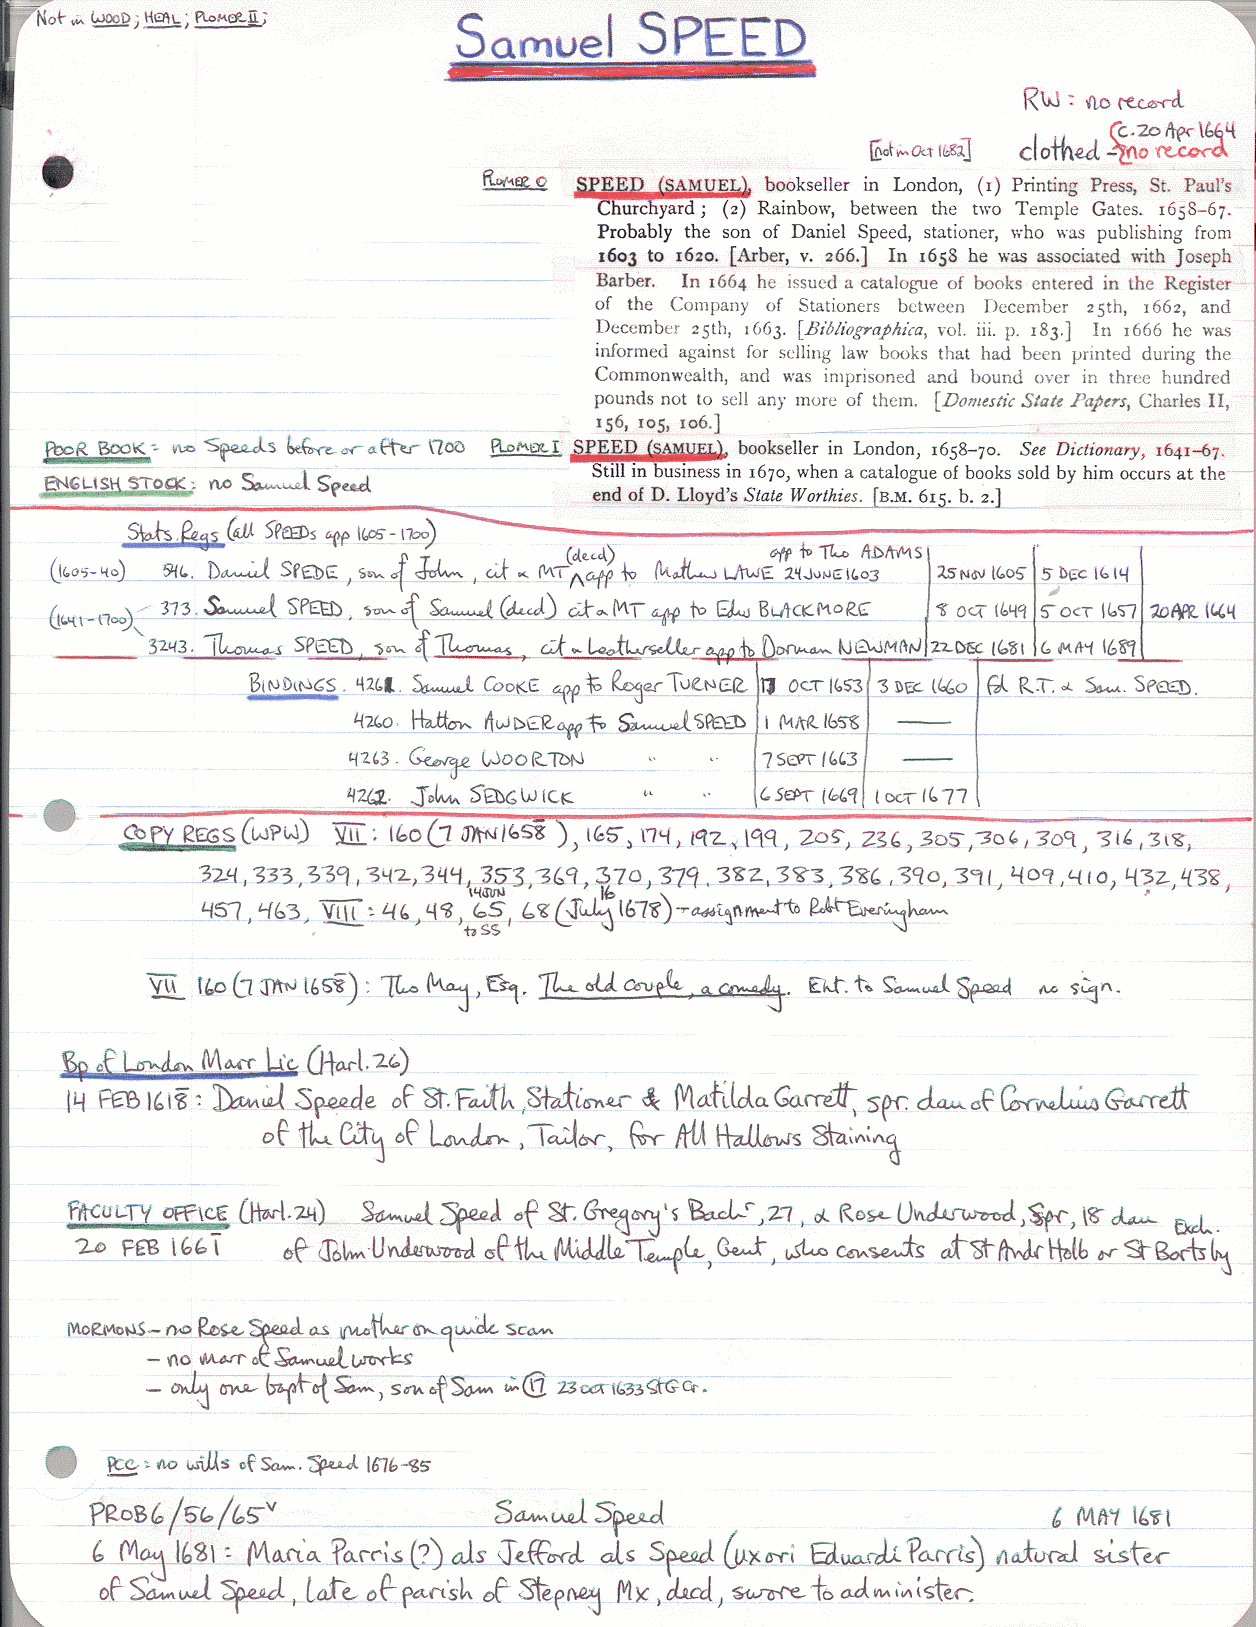 Not in WOOD; HEAL; PLOMER II;
Samuel SPEED
RW: no record
[not in Oct 1682] clothed - {c. 20 Apr 1664
no record
PLOMER O SPEED (SAMUEL), bookseller in London, (1) Printing Press, St. Paul's
Churchyard; (2) Rainbow, between the two Temple Gates. 1658-67.
Probably the son of Daniel Speed, stationer, who was publishing from
1603 to 1620. [Arber, v. 266.] In 1658 he was associated with Joseph
Barber. In 1664 he issued a catalogue of books entered in the Register
of the Company of Stationers between December 25th, 1662, and
December 25th, 1663. [Bibliographica, vol. iii. p. 183.] In 1666 he was
informed against for selling law books that had been printed during the
Commonwealth, and was imprisoned and bound over in three hundred
pounds not to sell any more of them. [Domestic State Papers, Charles II,
156, 105, 106.]
POOR BOOK: no Speeds before or after 1700 PLOMER I SPEED (SAMUEL), bookseller in London, 1658-70. See Dictionary, 1641-67.
Still in business in 1670, when a catalogue of books sold by him occurs at the
ENGLISH STOCK: no Samuel Speed
end of D. Lloyd's State Worthies. [B.M. 615. b. 2.]
Stats. Regs (all SPEEDs app 1605-1700)
(1605-40) 546. Daniel SPEDE, son of John, cit & MT (decd) app to Mathew LAWE 24 JUNE 1603 app to Tho ADAMS 25 NOV 1605 5 DEC 1614
(1641-1700) 373. Samuel SPEED, son of Samuel (decd) cit & MT app to Edw BLACKMORE 8 OCT 1649 5 OCT 1657 20 APR 1664
3243. Thomas SPEED, son of Thomas, cit & Leatherseller app to Dorman NEWMAN 22 DEC 1681 6 MAY 1689
BINDINGS. 4261. Samuel COOKE app to Roger TURNER 17 OCT 1653 3 DEC 1660 fd R.T. & Sam. SPEED.
4260. Hatton AWDER app to Samuel SPEED 1 MAR 1658 —
4263. George WOORTON " " 7 SEPT 1663 —
4262. John SEDGWICK " " 6 SEPT 1669 1 OCT 1677
COPY REGS (WPW) VII: 160 (7 JAN 1658), 165, 174, 192, 199, 205, 236, 305, 306, 309, 316, 318,
324, 333, 339, 342, 344, 353, 369, 370, 379, 382, 383, 386, 390, 391, 409, 410, 432, 438,
457, 463, VIII: 46, 48, 65 14 JUN to SS, 68 (July 16 1678) - assignment to Robt Everingham
VII 160 (7 JAN 1658): Tho May, Esq. The old couple, a comedy. Ent. to Samuel Speed no sign.
Bp of London Marr Lic (Harl. 26)
14 FEB 1618: Daniel Speede of St. Faith, Stationer & Matilda Garrett, spr. dau of Cornelius Garrett
of the City of London, Tailor, for All Hallows Staining
FACULTY OFFICE (Harl. 24) Samuel Speed of St. Gregory's Bachr, 27, & Rose Underwood, Spr, 18 dau Exch.
20 FEB 1661 of John Underwood of the Middle Temple, Gent, who consents at St Andr Holb or St Barts by
MORMONS - no Rose Speed as mother on quick scan
- no marr of Samuel works
- only one bapt of Sam, son of Sam in 17 23 OCT 1633 St G Cr.
PCC: no wills of Sam. Speed 1676-85
PROB6/56/65v Samuel Speed 6 MAY 1681
6 May 1681: Maria Parris (?) als Jefford als Speed (uxori Eduardi Parris) natural sister
of Samuel Speed, late of parish of Stepney Mx, decd, swore to administer.